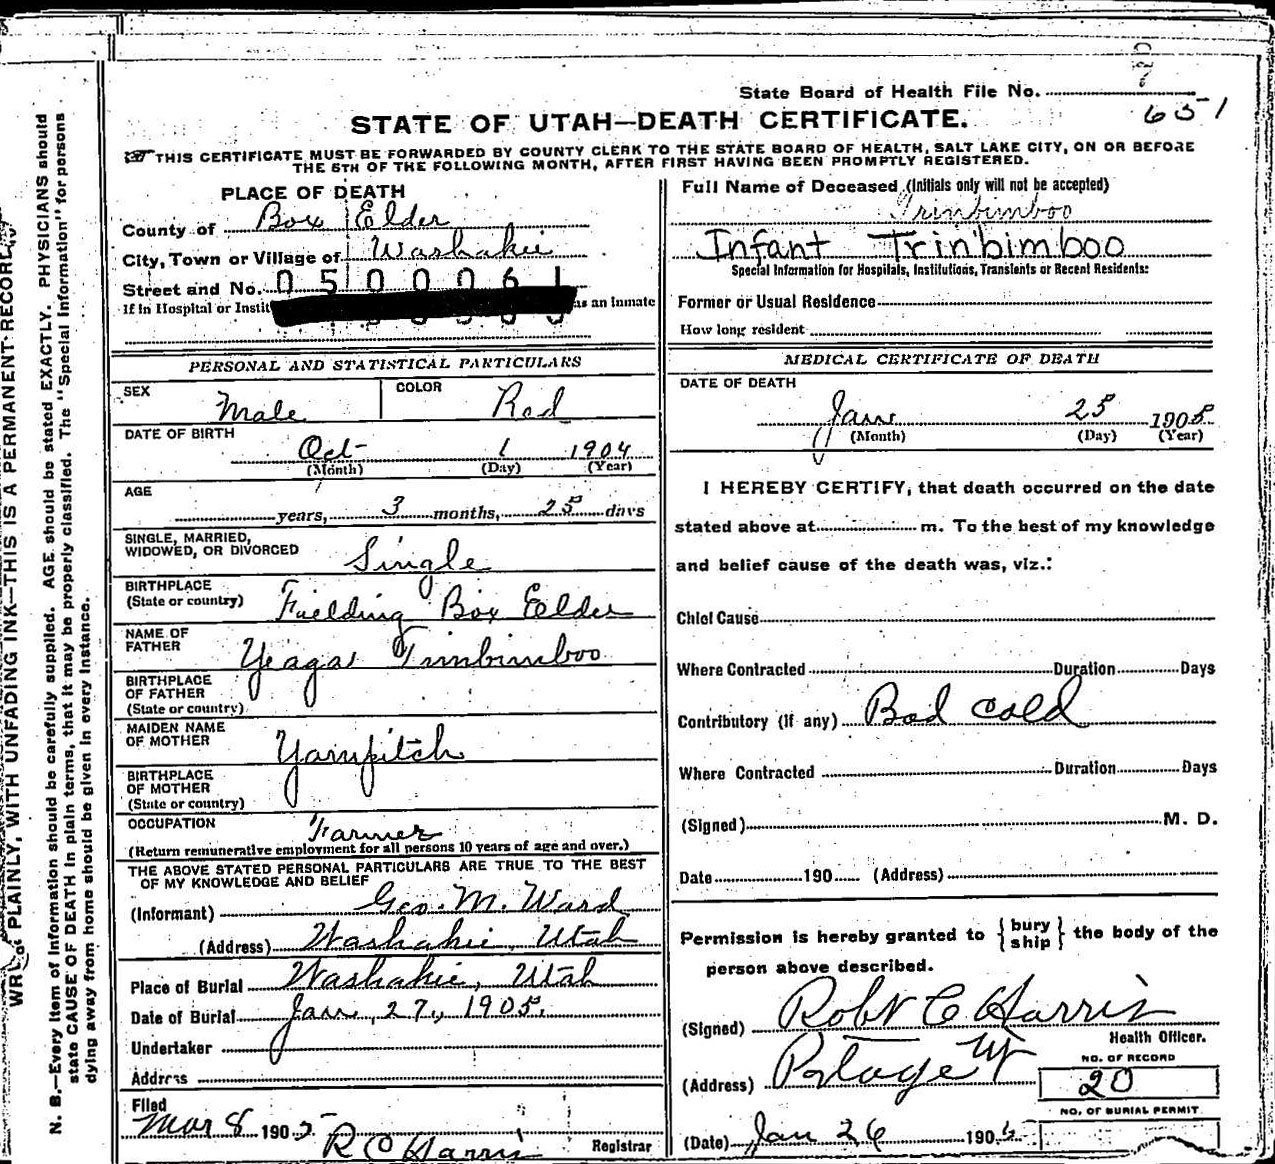 State Board of Health File No.
651
STATE OF UTAH—DEATH CERTIFICATE.
THIS CERTIFICATE MUST BE FORWARDED BY COUNTY CLERK TO THE STATE BOARD OF HEALTH, SALT LAKE CITY, ON OR BEFORE
THE 5TH OF THE FOLLOWING MONTH, AFTER FIRST HAVING BEEN PROMPTLY REGISTERED.
WRITE PLAINLY, WITH UNFADING INK—THIS IS A PERMANENT RECORD.
N. B.—Every item of information should be carefully supplied. AGE should be stated EXACTLY. PHYSICIANS should
state CAUSE OF DEATH in plain terms, that it may be properly classified. The "Special Information" for persons
dying away from home should be given in every instance.
PLACE OF DEATH
County of Box Elder
City, Town or Village of Washakie
Street and No. 0500061
If in Hospital or Instit as an Inmate
PERSONAL AND STATISTICAL PARTICULARS
SEX Male COLOR Red
DATE OF BIRTH
Oct 1 1904
(Month) (Day) (Year)
AGE
years, 3 months, 25 days
SINGLE, MARRIED,
WIDOWED, OR DIVORCED Single
BIRTHPLACE
(State or country) Fielding Box Elder
NAME OF
FATHER Yeagar Timbimboo
BIRTHPLACE
OF FATHER
(State or country)
MAIDEN NAME
OF MOTHER Yampitch
BIRTHPLACE
OF MOTHER
(State or country)
OCCUPATION Farmer
(Return remunerative employment for all persons 10 years of age and over.)
THE ABOVE STATED PERSONAL PARTICULARS ARE TRUE TO THE BEST
OF MY KNOWLEDGE AND BELIEF
(Informant) Geo. M. Ward
(Address) Washakie, Utah
Place of Burial Washakie, Utah
Date of Burial Jan, 27, 1905.
Undertaker
Address
Filed
Mar 8 1905 R C Harris Registrar
Full Name of Deceased (Initials only will not be accepted)
Trinbimboo
Infant Trinbimboo
Special Information for Hospitals, Institutions, Transients or Recent Residents:
Former or Usual Residence
How long resident
MEDICAL CERTIFICATE OF DEATH
DATE OF DEATH
Jan 25 1905
(Month) (Day) (Year)
I HEREBY CERTIFY, that death occurred on the date
stated above at m. To the best of my knowledge
and belief cause of the death was, viz.:
Chief Cause
Where Contracted Duration Days
Contributory (if any) Bad cold
Where Contracted Duration Days
(Signed) M. D.
Date 190 (Address)
Permission is hereby granted to {bury
ship} the body of the
person above described.
(Signed) Robt C Harris
Health Officer.
(Address) Portage Ut
NO. OF RECORD
20
NO. OF BURIAL PERMIT
(Date) Jan 26 1905